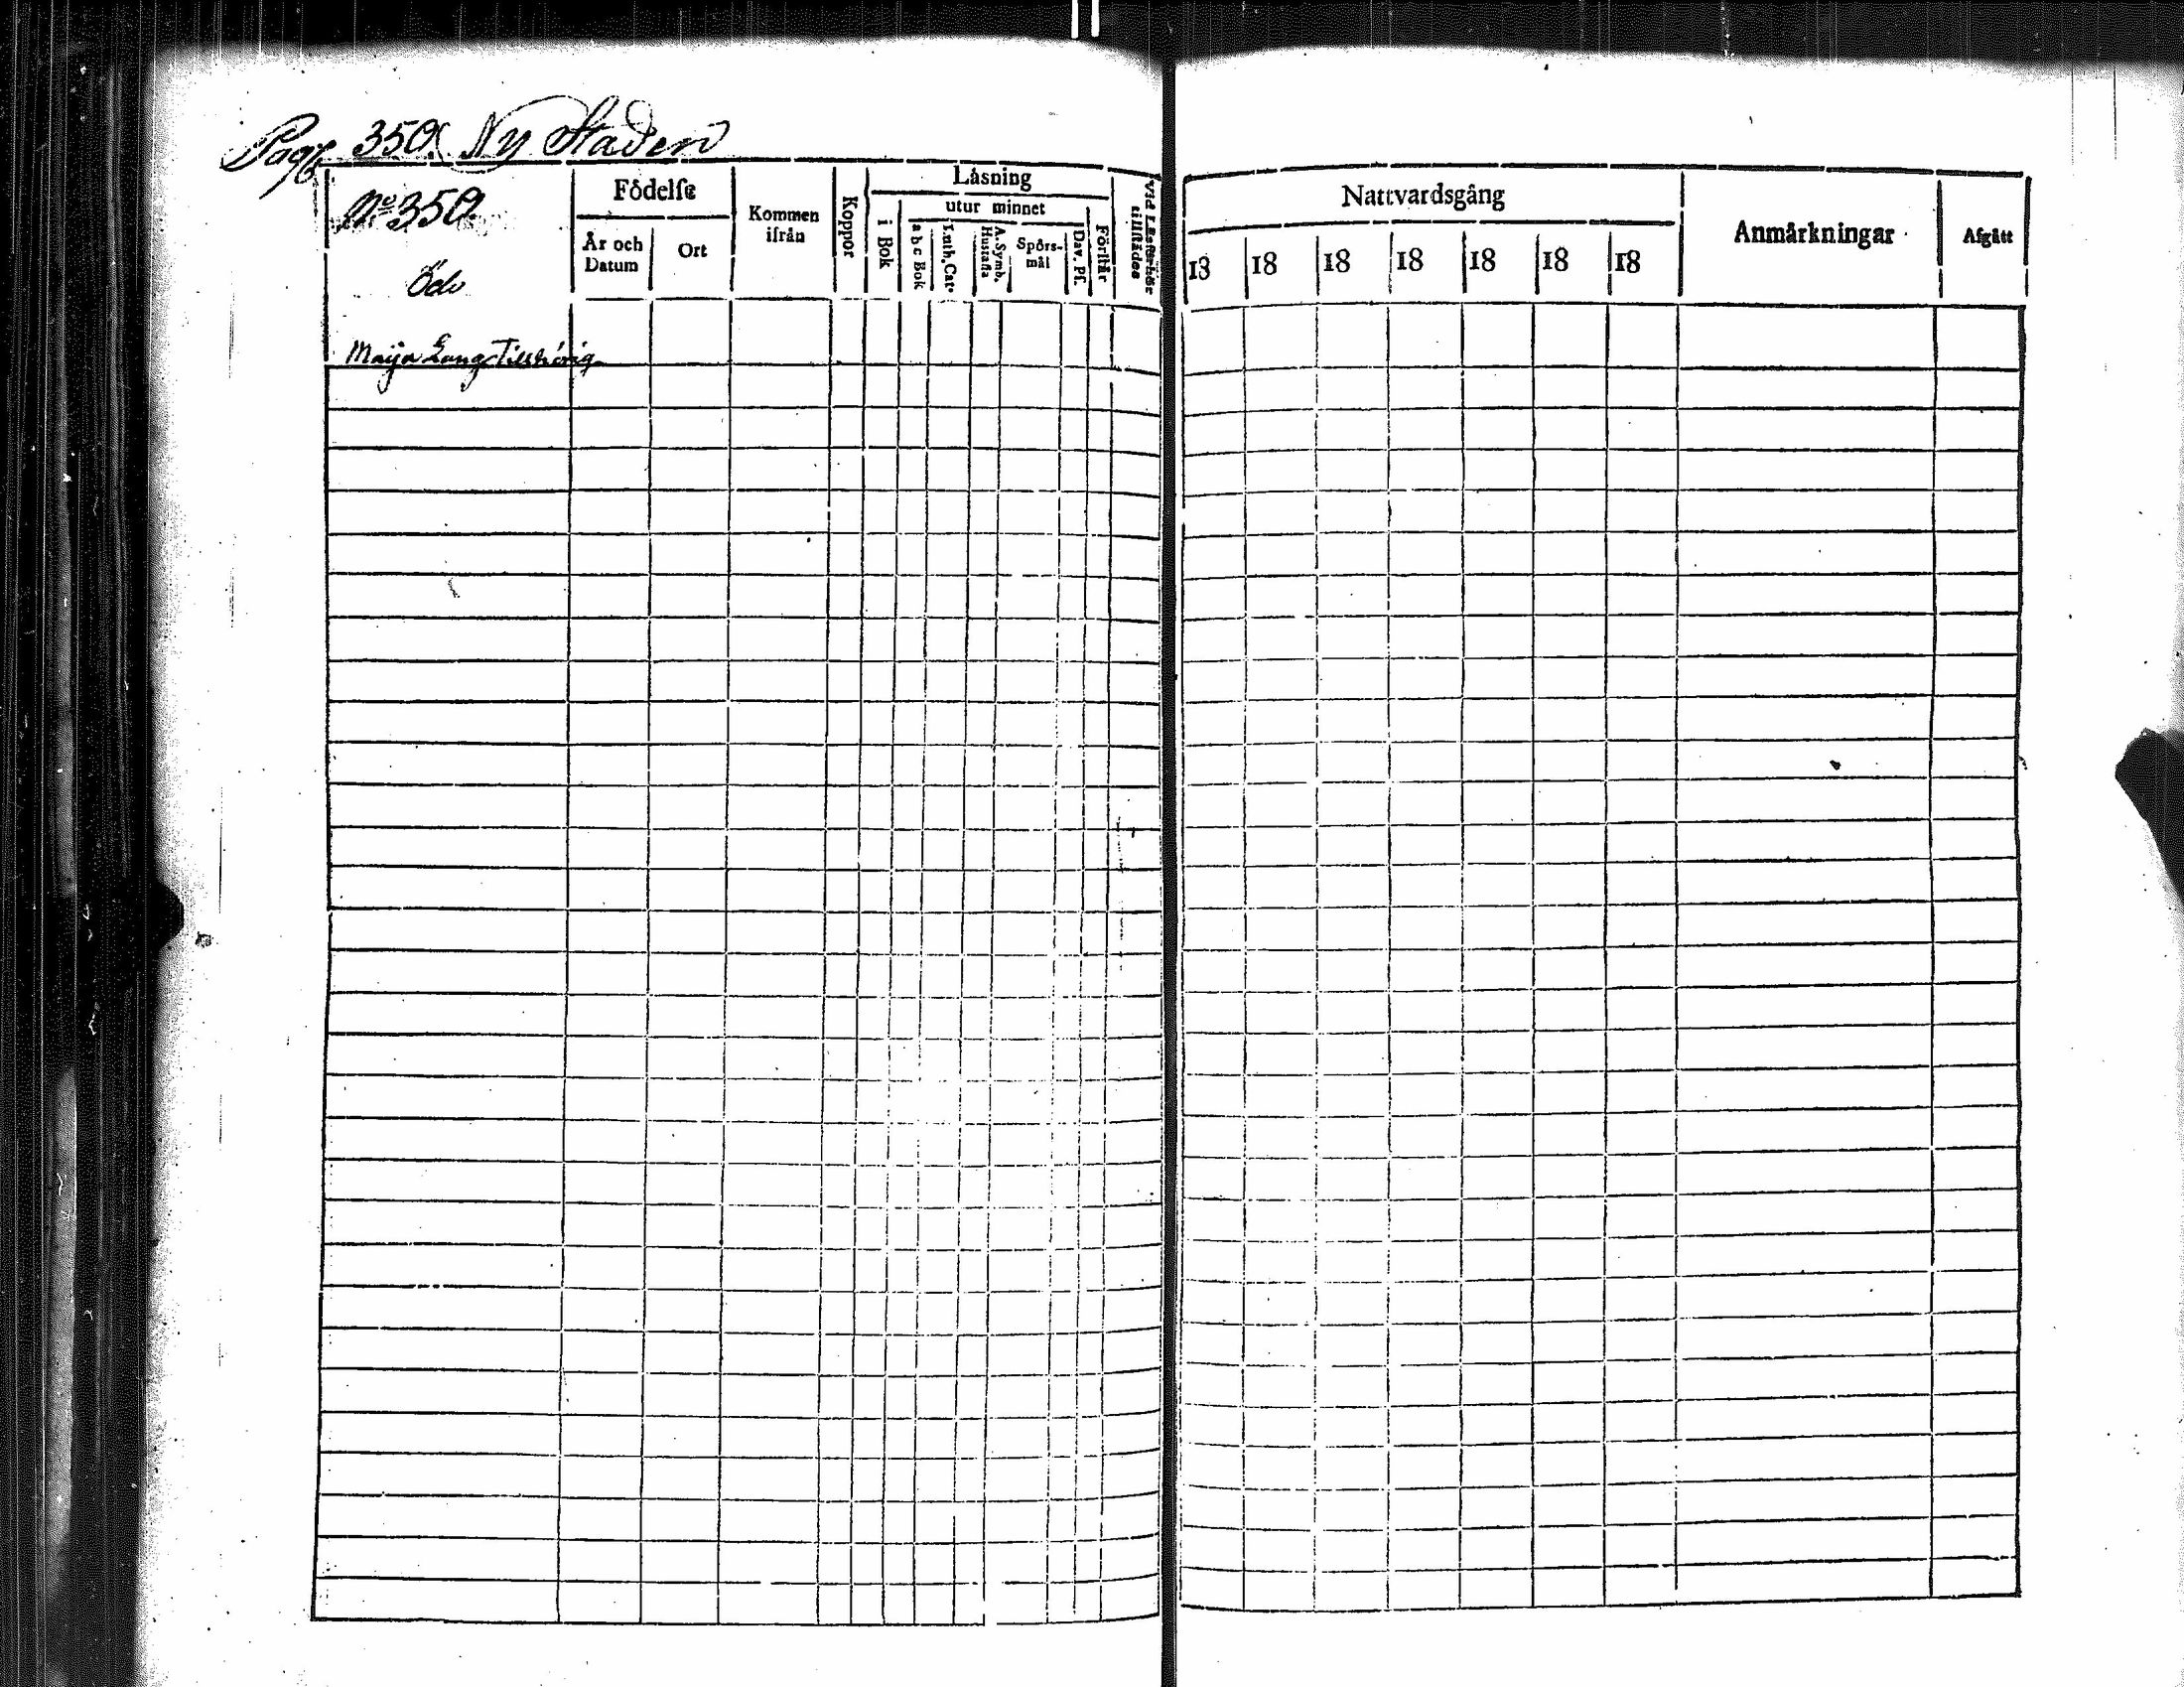 Pag. 350. Ny Staden
No 350.
Öde
Maija Lang Tillhörig
Födelſe
År och Datum
Ort
Kommen ifrån
Koppor
Läsning
i Bok
utur minnet
a b c Bok
Luth. Cat.
A. Symb. Hustafla
Spörs-
mål
Dav. Pſ.
Förſtår
Vid Läsförhör tillſtädes
Nattvardsgång
18 18 18 18 18 18 18
Anmärkningar
Afgått